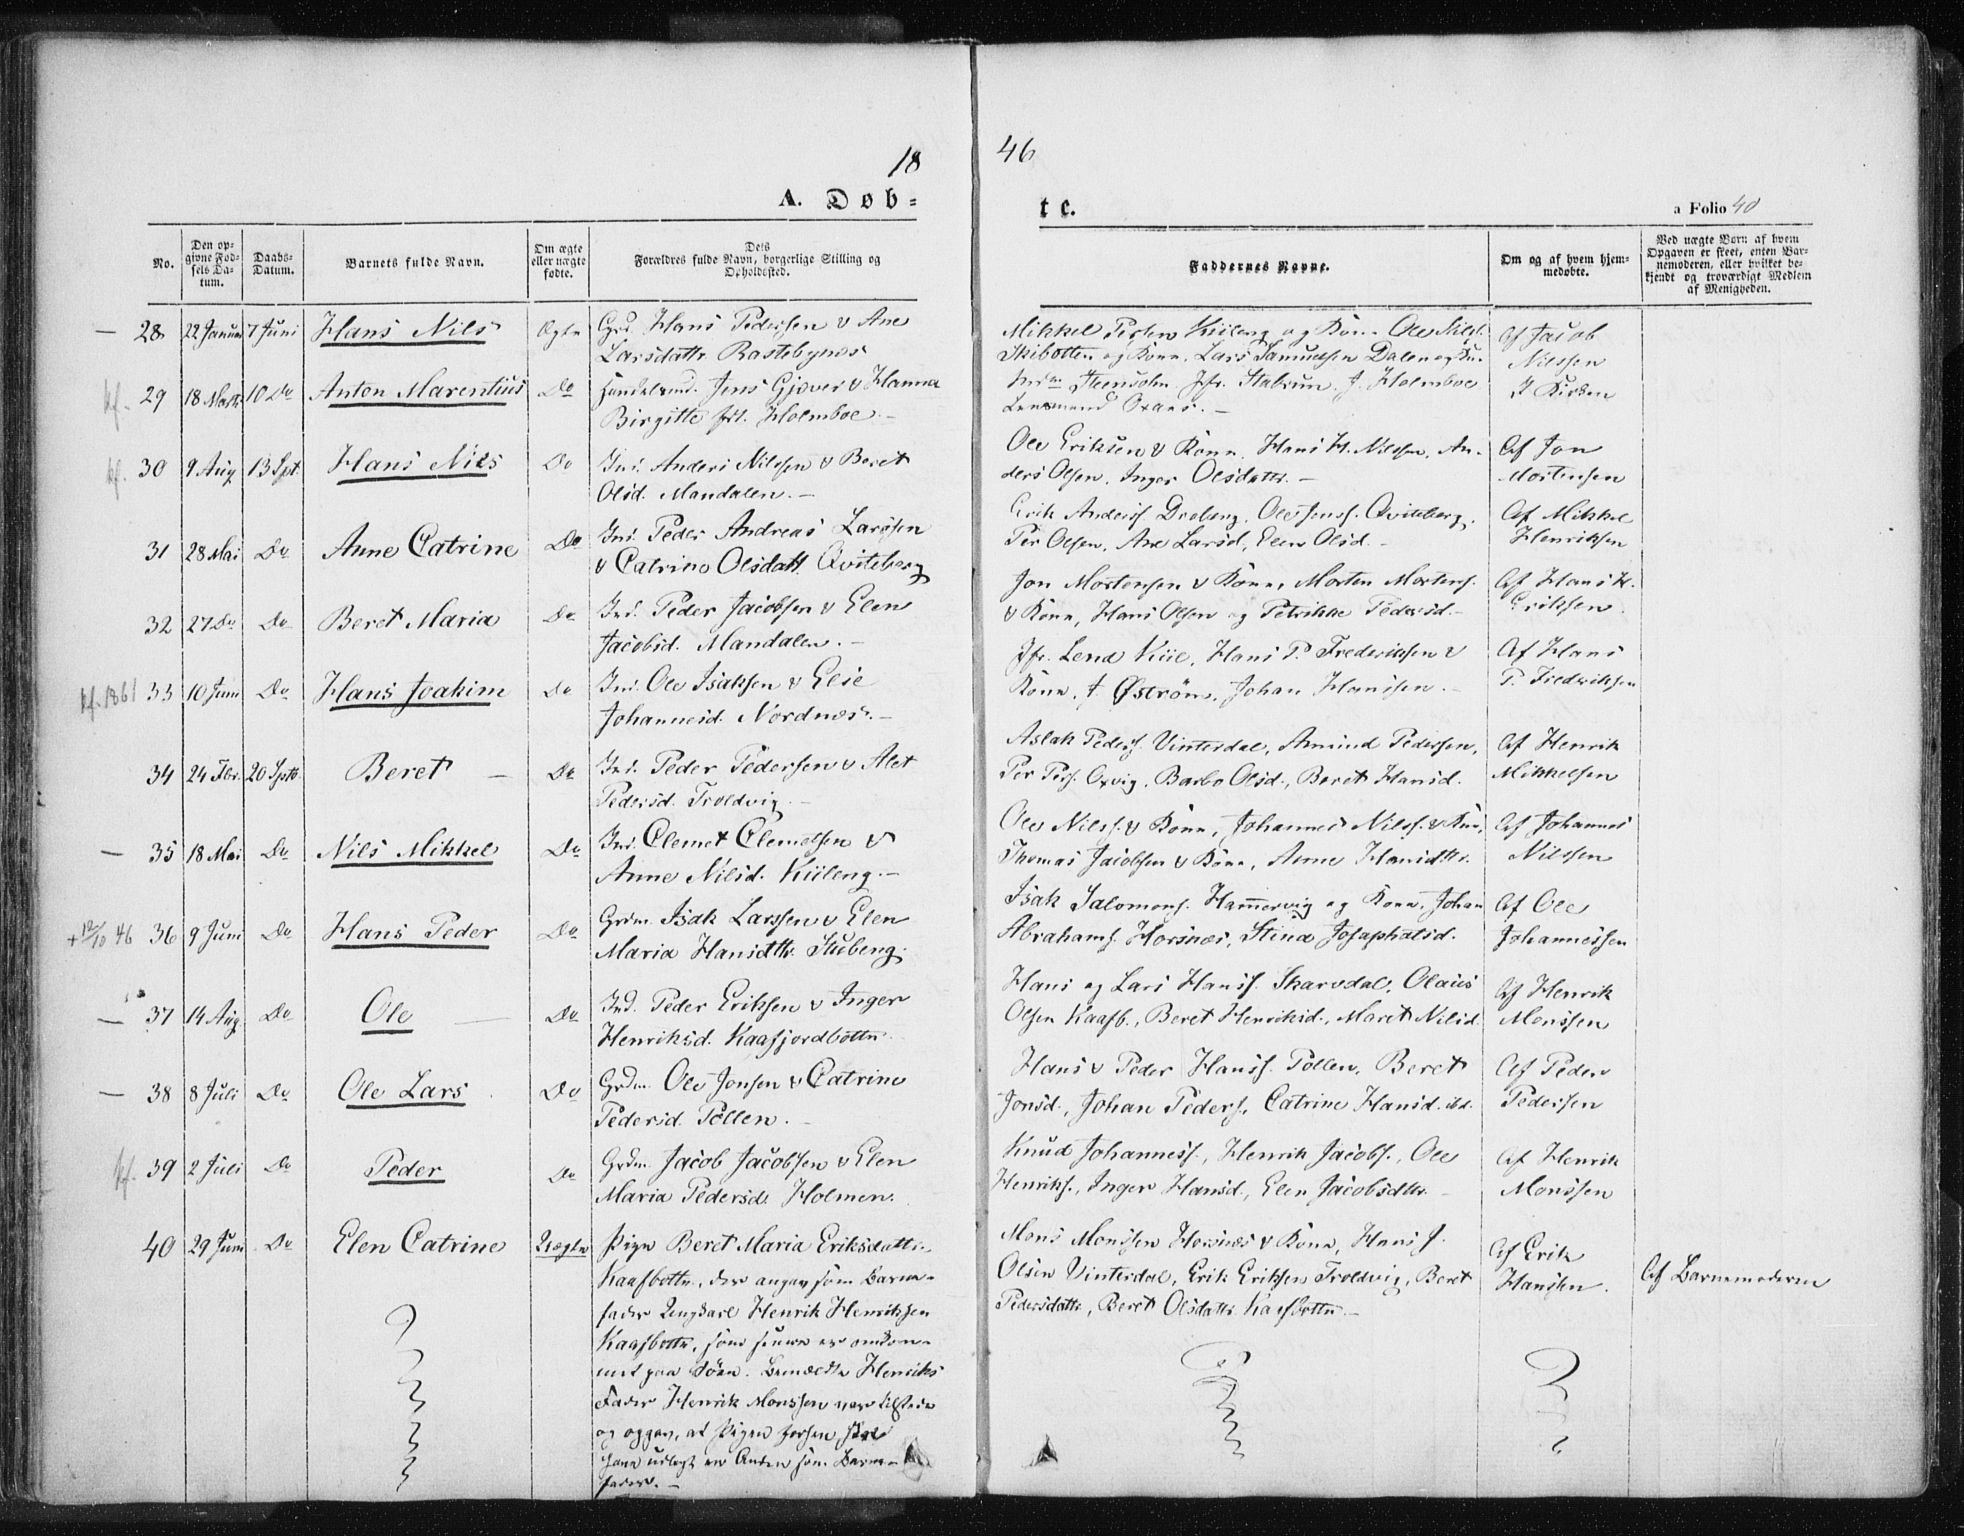 18
46
A. Døb=
te.
a Folio 40
No.
Den op-
givne Fød-
sels Da-
tum.
Daabs-
Datum.
Barnets fulde Navn.
Om ægte
eller uægte
fødte.
Dets
Forældres fulde Navn, borgerlige Stilling og
Opholdssted.
Faddernes Navne.
Om og af hvem hjem-
medøbte.
Ved uægte Børn af hvem
Opgaven er skeet, enten Bar-
nemoderen, eller hvilket be-
kjendt og troværdigt Medlem
af Menigheden.
— 28 22 Januar 7 Juni Hans Nils Ægte Hans Pedersen & Ane
Larsdattr. Rastebynæs
Mikkel Kiileng og Kone Ole
Skibotten og Kone. Lars Samuelsen Dalen og
Af Jacob
Nilssen
kf. 29 18 Marts 10 Do Anton Marentius Do Handelsmd. Jens Gjæver & Hanna
Birgitte Holmboe.
Steenholm. Jfr. J. Holmboe
Lensmand
kf. 30 9 Aug. 13 Spt. Hans Nils Do Ind. Anders Nilssen & Beret
Olsd. Mandalen.—
Ole Eriksen & Kone. Hans H. Nilssen, An-
ders Olsen. Inger Olsdattr.—
Af Jon
Mortensen
31 28 Mai Do Anne Catrine Do Ind. Peder Andreas Larssen
& Catrine Olsdatt. Qviteberg
Erik Anderss. Ole Jenss. Qviteberg.
Per Olsen, Ane Larsd, Elen Olsd.—
Af Mikkel
Henriksen
32 27 Do Do Beret Maria Do Ind. Peder Jacobsen & Elen
Jacobsd. Mandalen.—
Jon Mortensen & Kone, Morten Mortens.
& Kone, Hans Olsen og Petrikke Pedersd.—
Af Hans H.
Eriksen
kf. 1861 33 10 Juni Do Hans Joakim Do Ind. Ole Isaksen & Elie
Johannesd. Nordnæs.—
Jfr. Lena Kiil, Hans P. Frederiksen &
Kone, J. Østrøm, Johan Hanssen.—
Af Hans
P. Fredriksen
34 24 Fbr. 20 Sptb. Beret — Do Ind. Peder Pedersen & Alet
Pedersd. Troldvig.—
Aslak Peders. Vinterdal, Amund Pedersen,
Per Pers. Oxvig, Barbo Olsd., Beret Hansd.
Af Henrik
Mikkelsen
— 35 18 Mai Do Nils Mikkel Do Ind. Clemet Clemetsen &
Anne Nilsd. Kiileng.—
Ole Nilss. & Kone, Johannes Nilss. & Kone,
Thomas Jacobsen & Kone, Anne Hansdtr.
Af Johannes
Nilssen
+12/10 46 36 9 Juni Do Hans Peder Do Grdm. Isak Larssen & Elen
Maria Hansdtr.
Isak Salomons. Hammervig og Kone. Johan
Abrahams. Horsnæs, Stina Josaphatsd.
Af Ole
Johannessen
— 37 14 Aug. Do Ole — Do Ind. Peder Eriksen & Inger
Henriksd. Kaafjordbottn.
Hans og Lars Hanss. Skarvdal, Olaus
Olsen Kaafb., Beret Henriksd., Maret Nilsd.
Af Henrik
Monssen
— 38 8 Juli Do Ole Lars Do Grdm. Ole Jonsen & Catrine
Pedersd. Pollen.—
Hans & Peder Hanss. Pollen, Beret
Jonsd., Johan Peders., Catrine Hansd. ibd.
Af Peder
Pedersen
kf. 39 2 Juli Do Peder Do Grdm. Jacob Jacobsen & Elen
Maria Pedersd. Holmen.
Knud Johanness., Henrik Jacobs., Ole
Henriks., Inger Hansd., Elen Jacobsdtr.—
Af Henrik
Monssen
40 29 Juni Do Elen Catrine Uægte Pige Beret Maria Eriksdattr.
Kaafbottn, der angav som Barne-
fader Ungkarl Henrik Henrikssen
Kaafbottn, som senere er omkom-
met paa Søen. Bemeldte Henriks
Fader Henrik Monssen var tilstede
og opgav, at Pigen forhen skal
have udlagt en Anden som Barne-
fader.—
Mons Monssen Horsnæs & Kone, Hans J.
Olsen Vinterdal, Erik Eriksen Troldvig, Beret
Pedersdattr., Beret Olsdattr. Kaafbottn—
Af Erik
Hanssen.
Af Barnemoderen